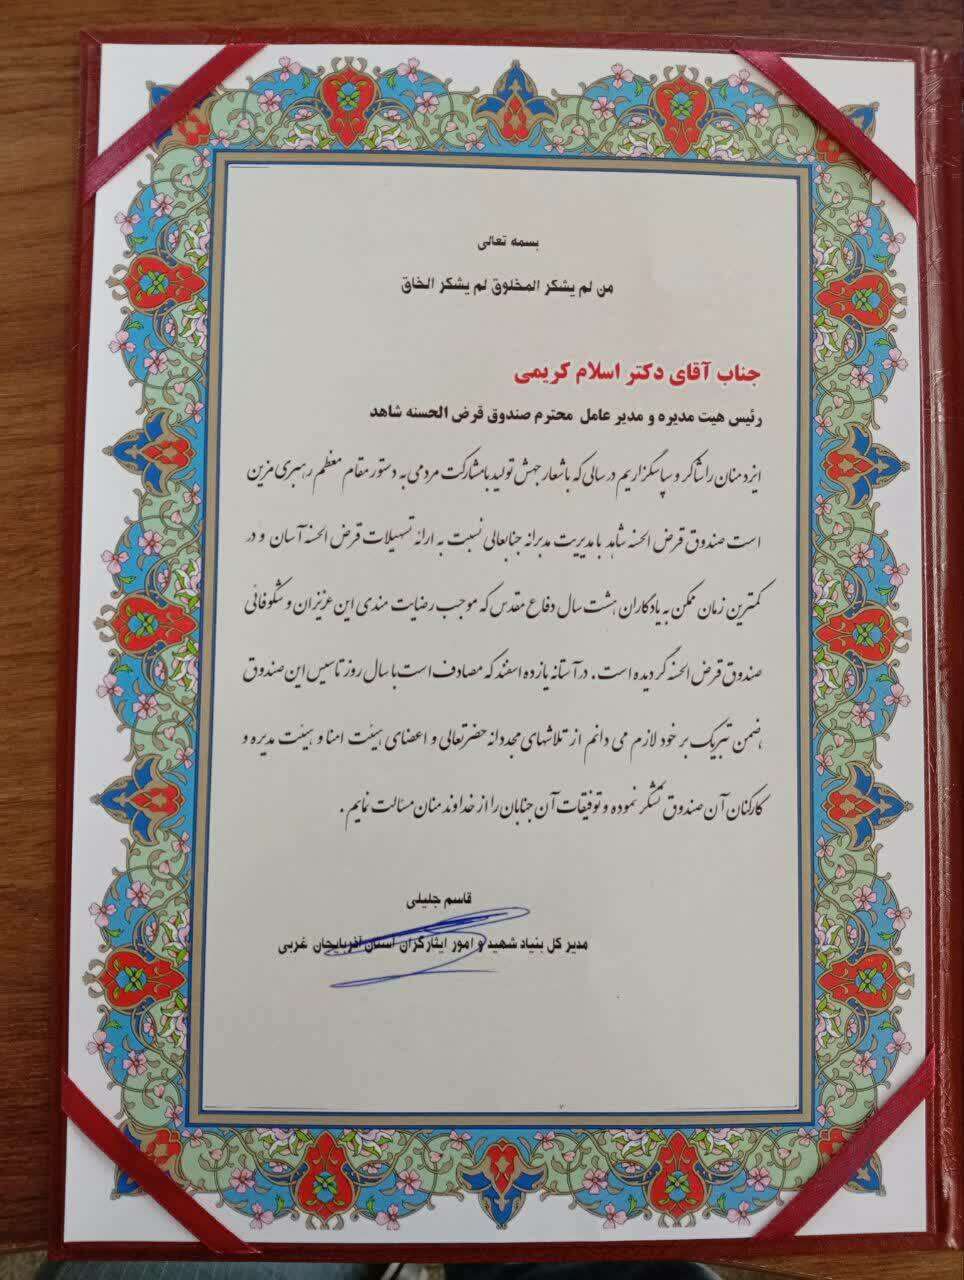 بسمه تعالی
من لم یشکر المخلوق لم یشکر الخاق
جناب آقای دکتر اسلام کریمی
رئیس هیت مدیره و مدیر عامل محترم صندوق قرض الحسنه شاهد
ایزد منان را شاکر و سپاسگزاریم در سالی که با شعار جهش تولید با مشارکت مردمی به دستور مقام معظم رهبری مزین
است صندوق قرض الحسنه شاهد با مدیریت مدبرانه جنابعالی نسبت به ارائه تسهیلات قرض الحسنه آسان و در
کمترین زمان ممکن به یادگاران هشت سال دفاع مقدس که موجب رضایت مندی این عزیزان و شکوفائی
صندوق قرض الحسنه گردیده است . در آستانه یازده اسفند که مصادف است با سال روز تاسیس این صندوق
ضمن تبریک بر خود لازم می دانم از تلاشهای مجددانه حضرتعالی و اعضای هیئت امنا و هیئت مدیره و
کارکنان آن صندوق تشکر نموده و توفیقات آن جنابان را از خداوند منان مسالت نمایم .
قاسم جلیلی
مدیر کل بنیاد شهید و امور ایثارگران استان آذربایجان غربی